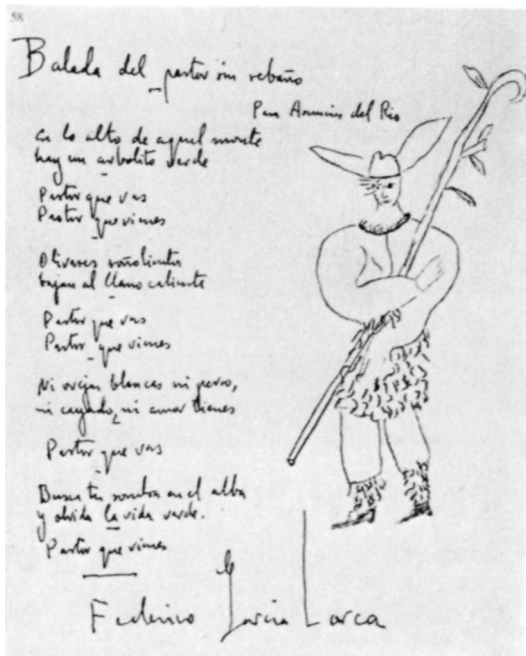 58
Balada del pastor sin rebaño
Para Amelia del Río
En lo alto de aquel monte
hay un arbolito verde
Pastor que vas
Pastor que vienes
Olivares soñolientos
bajan al llano caliente
Pastor que vas
Pastor que vienes
Ni ovejas blancas ni perro,
ni cayado, ni amor tienes
Pastor que vas
Busca tu sombra en el alba
y olvida la vida verde.
Pastor que vienes
Federico García Lorca